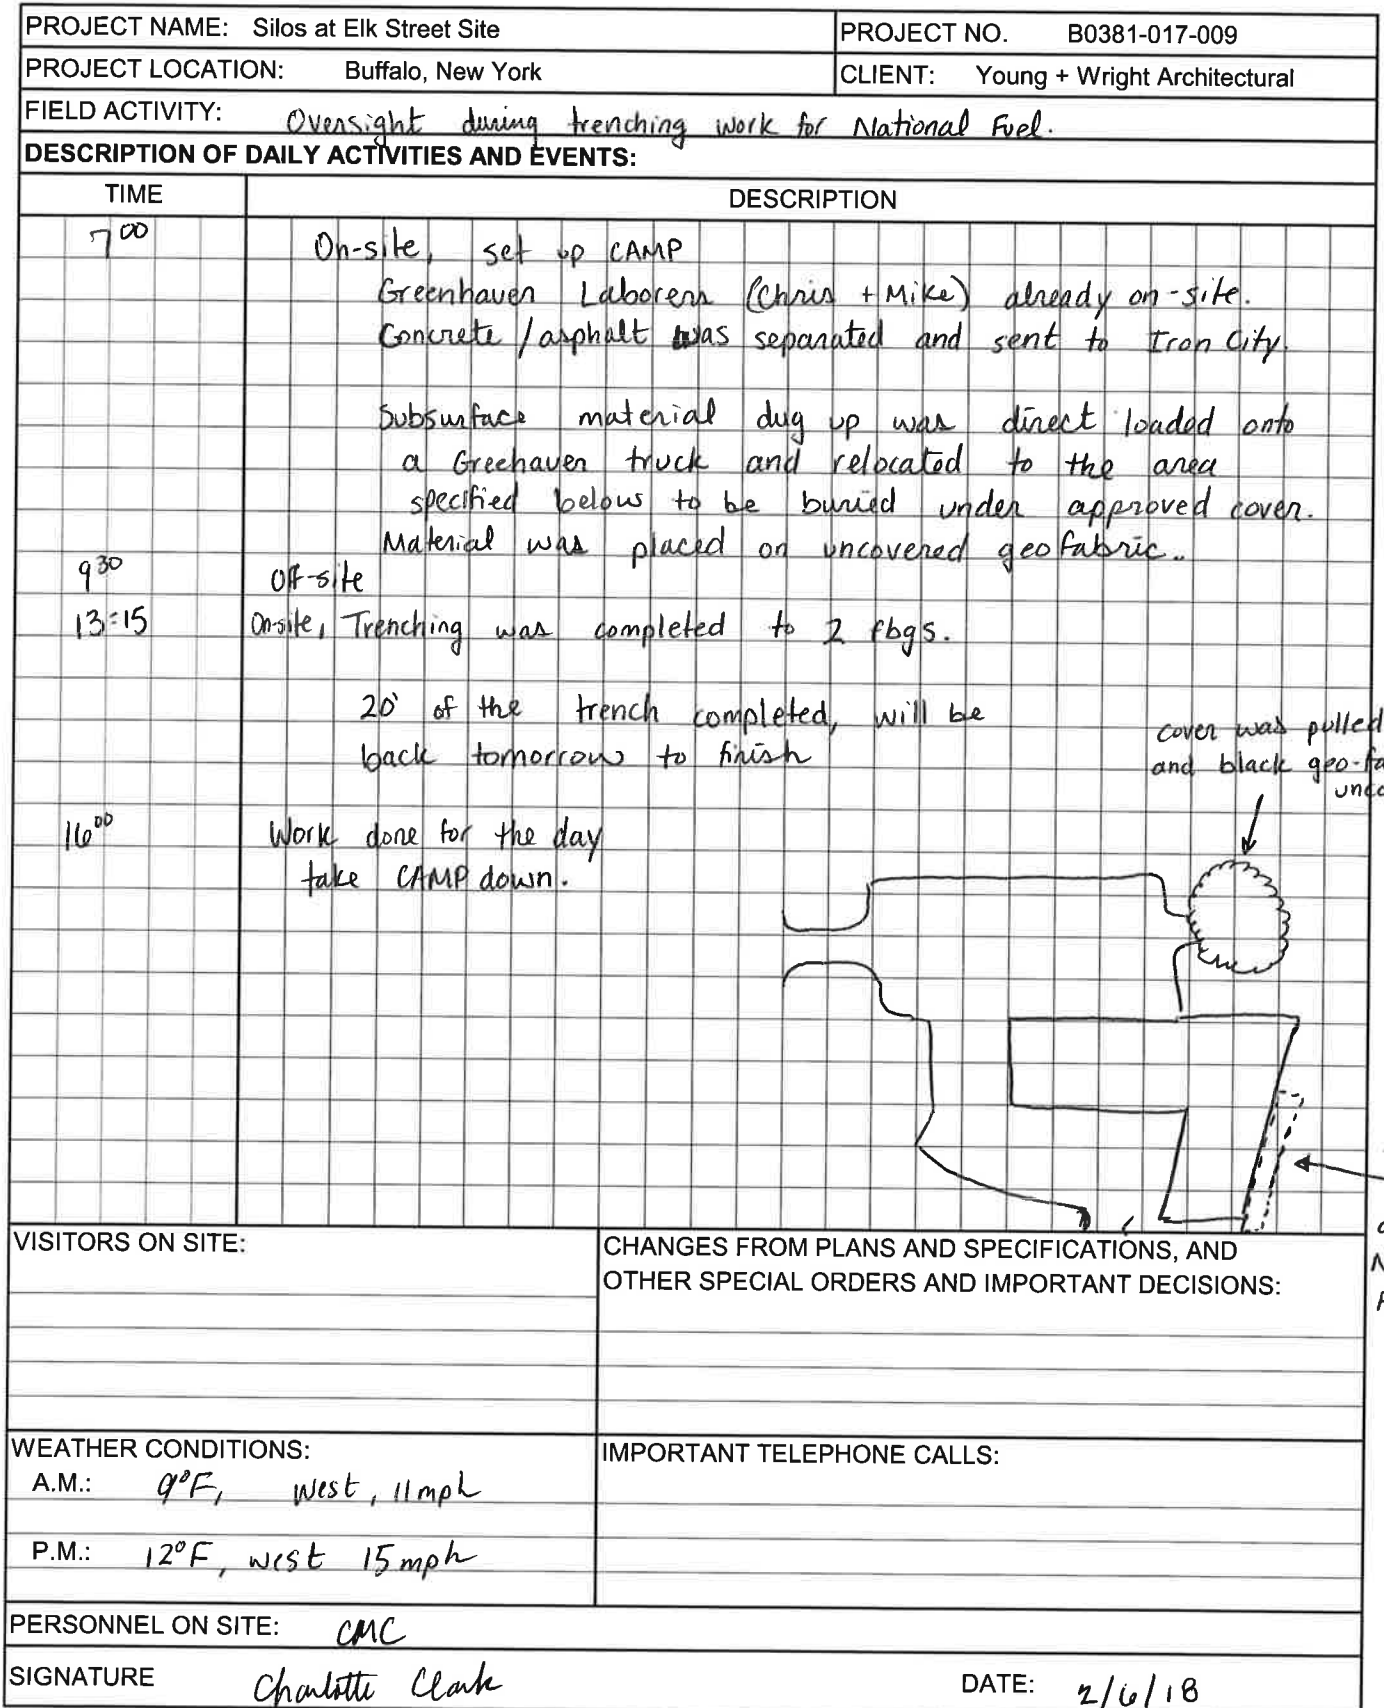 PROJECT NAME: Silos at Elk Street Site
PROJECT NO. B0381-017-009
PROJECT LOCATION: Buffalo, New York
CLIENT: Young + Wright Architectural
FIELD ACTIVITY: Oversight during trenching work for National Fuel.
DESCRIPTION OF DAILY ACTIVITIES AND EVENTS:
TIME DESCRIPTION
7 00 On-site, set up CAMP
Greenhaven Laborers (Chris + Mike) already on-site.
Concrete / asphalt was separated and sent to Iron City.
Subsurface material dug up was direct loaded onto
a Greehaven truck and relocated to the area
specified below to be buried under approved cover.
Material was placed on uncovered geofabric.
9 30 Off-site
13:15 On-site, Trenching was completed to 2 fbgs.
20' of the trench completed, will be
back tomorrow to finish
cover was pulled
and black geo-fa
unco
16 00 Work done for the day
take CAMP down.
VISITORS ON SITE:
CHANGES FROM PLANS AND SPECIFICATIONS, AND
OTHER SPECIAL ORDERS AND IMPORTANT DECISIONS:
WEATHER CONDITIONS:
A.M.: 9°F, West, 11mph
P.M.: 12°F, west 15 mph
IMPORTANT TELEPHONE CALLS:
PERSONNEL ON SITE: CMC
SIGNATURE Charlotte Clark
DATE: 2/6/18